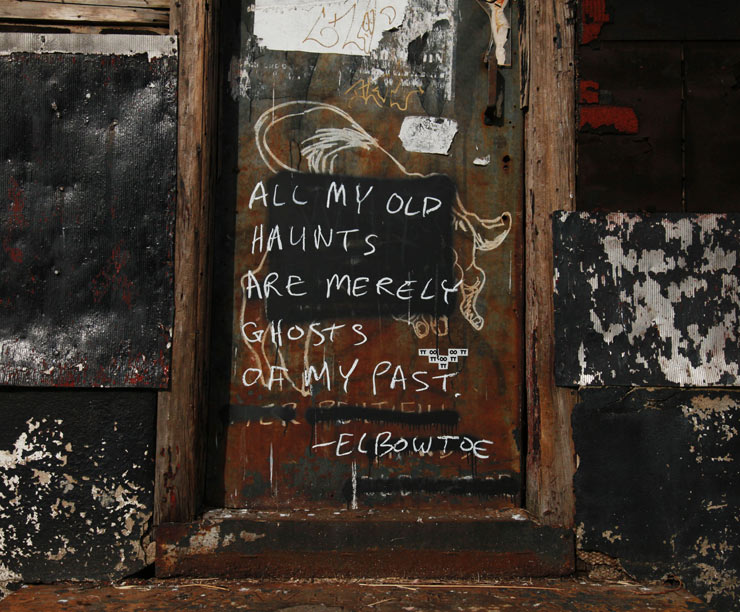 ALL MY OLD
HAUNTS
ARE MERELY
GHOSTS
OF MY PAST.
-ELBOWTOE